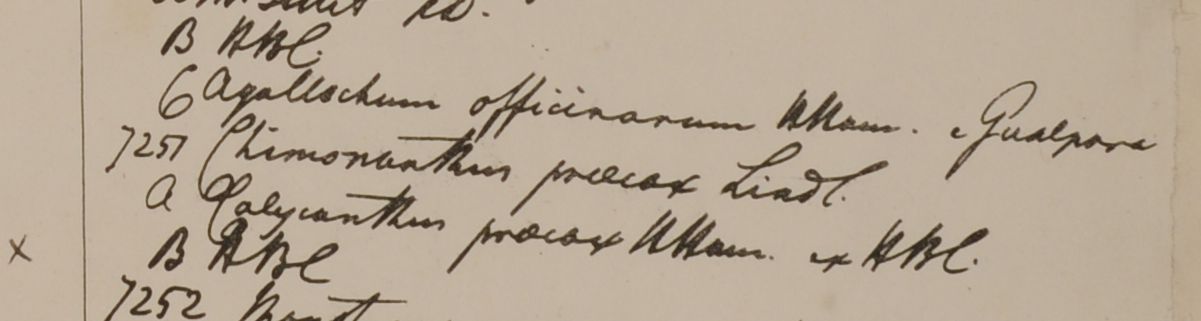 B HBC.
C Agallochum officinarum HHam. e Gualpara
7251 Chimonanthus præcox Lindl.
A Calycanthus præcox HHam. ex HBC.
x B HBC
7252